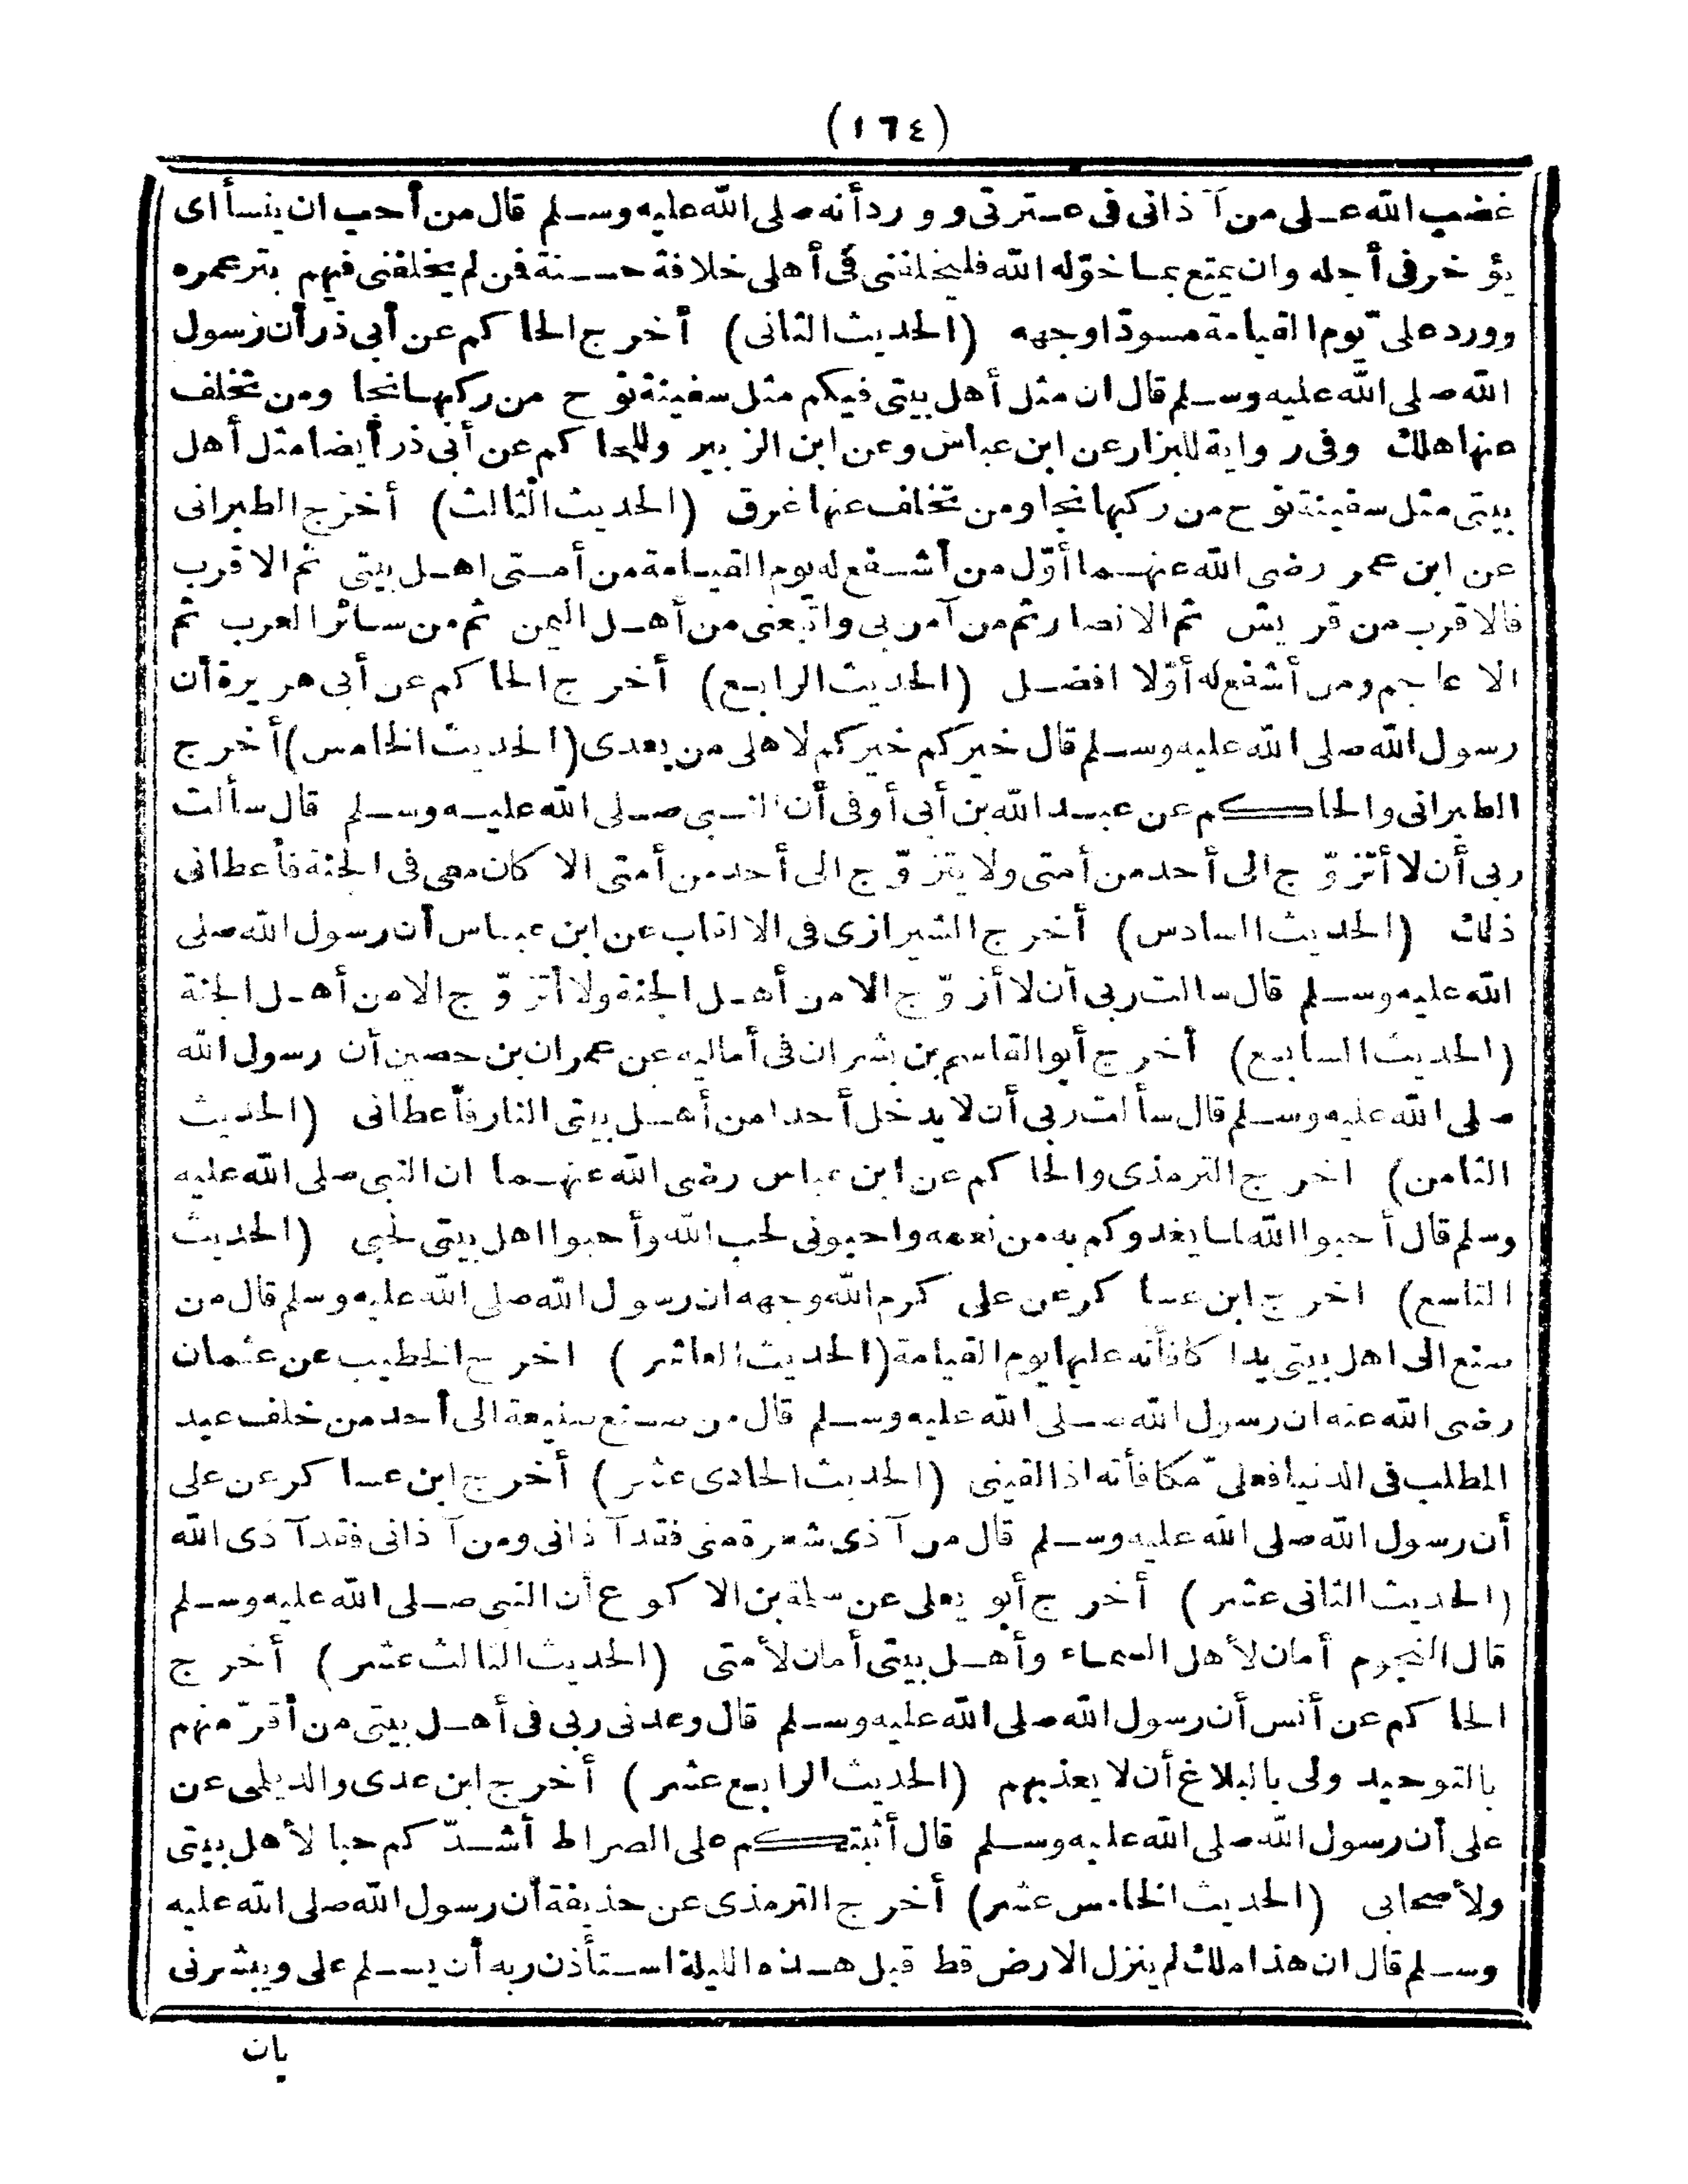 (١٦٤)
غضب الله على من آذانى فى عترتى وورد أنه صلى الله عليه وسلم قال من أحب ان ينسأ اى
يؤخر فى أجله وان يمتع بما خوّله الله فليخلفنى فى أهلى خلافة حسنة فن لم يخلفنى فيهم بتر عمره
وورد على ّ يوم القيامة مسودّا وجهه (الحديث الثانى) أخرج الحاكم عن أبى ذر أن رسول
الله صلى الله عليه وسلم قال ان مثل أهل بيتى فيكم مثل سفينة نوح من ركبها نجا ومن تخلف
عنها هلك وفى رواية للبزار عن ابن عباس وعن ابن الزبير وللحاكم عن أبى ذر أيضا مثل أهل
بيتى مثل سفينة نوح من ركبها نجا ومن تخلف عنها غرق (الحديث الثالث) أخرج الطبرانى
عن ابن عمر رضى الله عنهما أوّل من أشفع له يوم القيامة من أمتى اهل بيتى ثم الاقرب
فالاقرب من قريش ثم الانصار ثم من آمن بى واتبعنى من أهل اليمن ثم من سائر العرب ثم
الاعاجم ومن أشفع له أوّلا افضل (الحديث الرابع) أخرج الحاكم عن أبى هريرة أن
رسول الله صلى الله عليه وسلم قال خيركم خيركم لاهلى من بعدى (الحديث الخامس) أخرج
الطبرانى والحاكم عن عبد الله بن أبى أوفى أن النبى صلى الله عليه وسلم قال سألت
ربى أن لا أتزوّج الى أحد من أمتى ولا يتزوّج الى أحد من أمتى الا كان معى فى الجنة فأعطانى
ذلك (الحديث السادس) أخرج الشيرازى فى الالقاب عن ابن عباس أن رسول الله صلى
الله عليه وسلم قال سالت ربى أن لا أزوّج الا من أهل الجنة ولا أتزوّج الا من أهل الجنة
(الحديث السابع) أخرج أبو القاسم بن بشران فى أماليه عن عمران بن حصين أن رسول الله
صلى الله عليه وسلم قال سألت ربى أن لا يدخل أحدا من أهل بيتى النار فأعطانى (الحديث
الثامن) اخرج الترمذى والحاكم عن ابن عباس رضى الله عنهما ان النبى صلى الله عليه
وسلم قال أحبوا الله لما يغدوكم به من نعمه واحبونى لحب الله وأحبوا اهل بيتى لحبى (الحديث
التاسع) اخرج ابن عساكر عن على كرم الله وجهه ان رسول الله صلى الله عليه وسلم قال من
صنع الى اهل بيتى يدا كافأته عليها يوم القيامة (الحديث العاشر) اخرج الخطيب عن عثمان
رضى الله عنه ان رسول الله صلى الله عليه وسلم قال من صنع صنيعة الى أحد من خلف عبد
المطلب فى الدنيا فعلىّ مكافأته اذا لقينى (الحديث الحادى عشر) أخرج ابن عساكر عن على
أن رسول الله صلى الله عليه وسلم قال من آذى شعرة منى فقد آذانى ومن آذانى فقد آذى الله
(الحديث الثانى عشر) أخرج أبو يعلى عن سلمة بن الاكوع أن النبى صلى الله عليه وسلم
قال النجوم أمان لأهل السماء وأهل بيتى أمان لأمتى (الحديث الثالث عشر) أخرج
الحاكم عن أنس أن رسول الله صلى الله عليه وسلم قال وعدنى ربى فى أهل بيتى من أقرّ منهم
بالتوحيد ولى بالبلاغ أن لا يعذبهم (الحديث الرابع عشر) أخرج ابن عدى والديلمى عن
على أن رسول الله صلى الله عليه وسلم قال أثبتكم على الصراط أشدّكم حبا لأهل بيتى
ولأصحابى (الحديث الخامس عشر) أخرج الترمذى عن حذيفة أن رسول الله صلى الله عليه
وسلم قال ان هذا ملك لم ينزل الارض قط قبل هذه الليلة استأذن ربه أن يسلم على ويبشرنى
بان